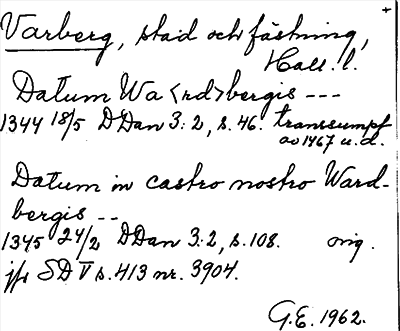 +
Varberg, stad och fästning,
Hall. l.
Datum Wa<rd>bergis ---
1344 18/5 DDan 3:2, s. 46. transsumpt
av 1467 u.d.
Datum in castro nostro Ward-
bergis --
1345 24/2 DDan 3:2, s. 108. orig.
jfr SD V s. 413 nr. 3904.
G.E. 1962.